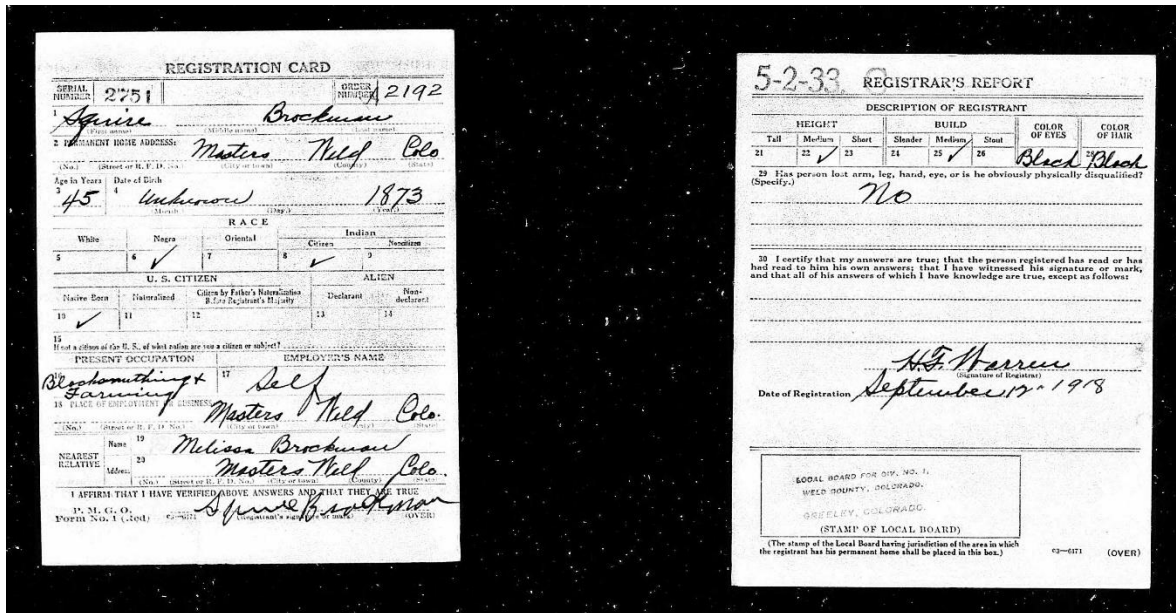 REGISTRATION CARD
SERIAL NUMBER 2751 ORDER NUMBER A 2192
1 Squire Brockman
(First name) (Middle name) (Last name)
2 PERMANENT HOME ADDRESS: Masters Weld Colo
(No.) (Street or R. F. D. No.) (City or town) (County) (State)
Age in Years Date of Birth
3 45 4 Unknown 1873
(Month.) (Day.) (Year.)
RACE
White Negro Oriental Indian
Citizen Noncitizen
5 6 ✓ 7 8 ✓ 9
U. S. CITIZEN ALIEN
Native Born Naturalized Citizen by Father's Naturalization Before Registrant's Majority Declarant Non-declarant
10 ✓ 11 12 13 14
15
If not a citizen of the U. S., of what nation are you a citizen or subject?
PRESENT OCCUPATION EMPLOYER'S NAME
16 Blacksmithing + 17 Self
Farming
18 PLACE OF EMPLOYMENT OR BUSINESS: Masters Weld Colo.
(No.) (Street or R. F. D. No.) (City or town) (County) (State)
NEAREST RELATIVE Name 19 Melissa Brockman
Address 20 Masters Weld Colo.
(No.) (Street or R. F. D. No.) (City or town) (County) (State)
I AFFIRM THAT I HAVE VERIFIED ABOVE ANSWERS AND THAT THEY ARE TRUE
P. M. G. O.
Form No. 1 (Red) 03—6171 Squire Brockman
(Registrant's signature or mark) (OVER)
5-2-33. C REGISTRAR'S REPORT
DESCRIPTION OF REGISTRANT
HEIGHT BUILD COLOR OF EYES COLOR OF HAIR
Tall Medium Short Slender Medium Stout
21 22 ✓ 23 24 25 ✓ 26 Black 28 Black
29 Has person lost arm, leg, hand, eye, or is he obviously physically disqualified?
(Specify.) No
30 I certify that my answers are true; that the person registered has read or has
had read to him his own answers; that I have witnessed his signature or mark,
and that all of his answers of which I have knowledge are true, except as follows:
H.F. Warren
(Signature of Registrar)
Date of Registration September 12 - 1918
LOCAL BOARD FOR DIV. NO. 1,
WELD COUNTY, COLORADO.
GREELEY, COLORADO.
(STAMP OF LOCAL BOARD)
(The stamp of the Local Board having jurisdiction of the area in which
the registrant has his permanent home shall be placed in this box.)
03—6171 (OVER)